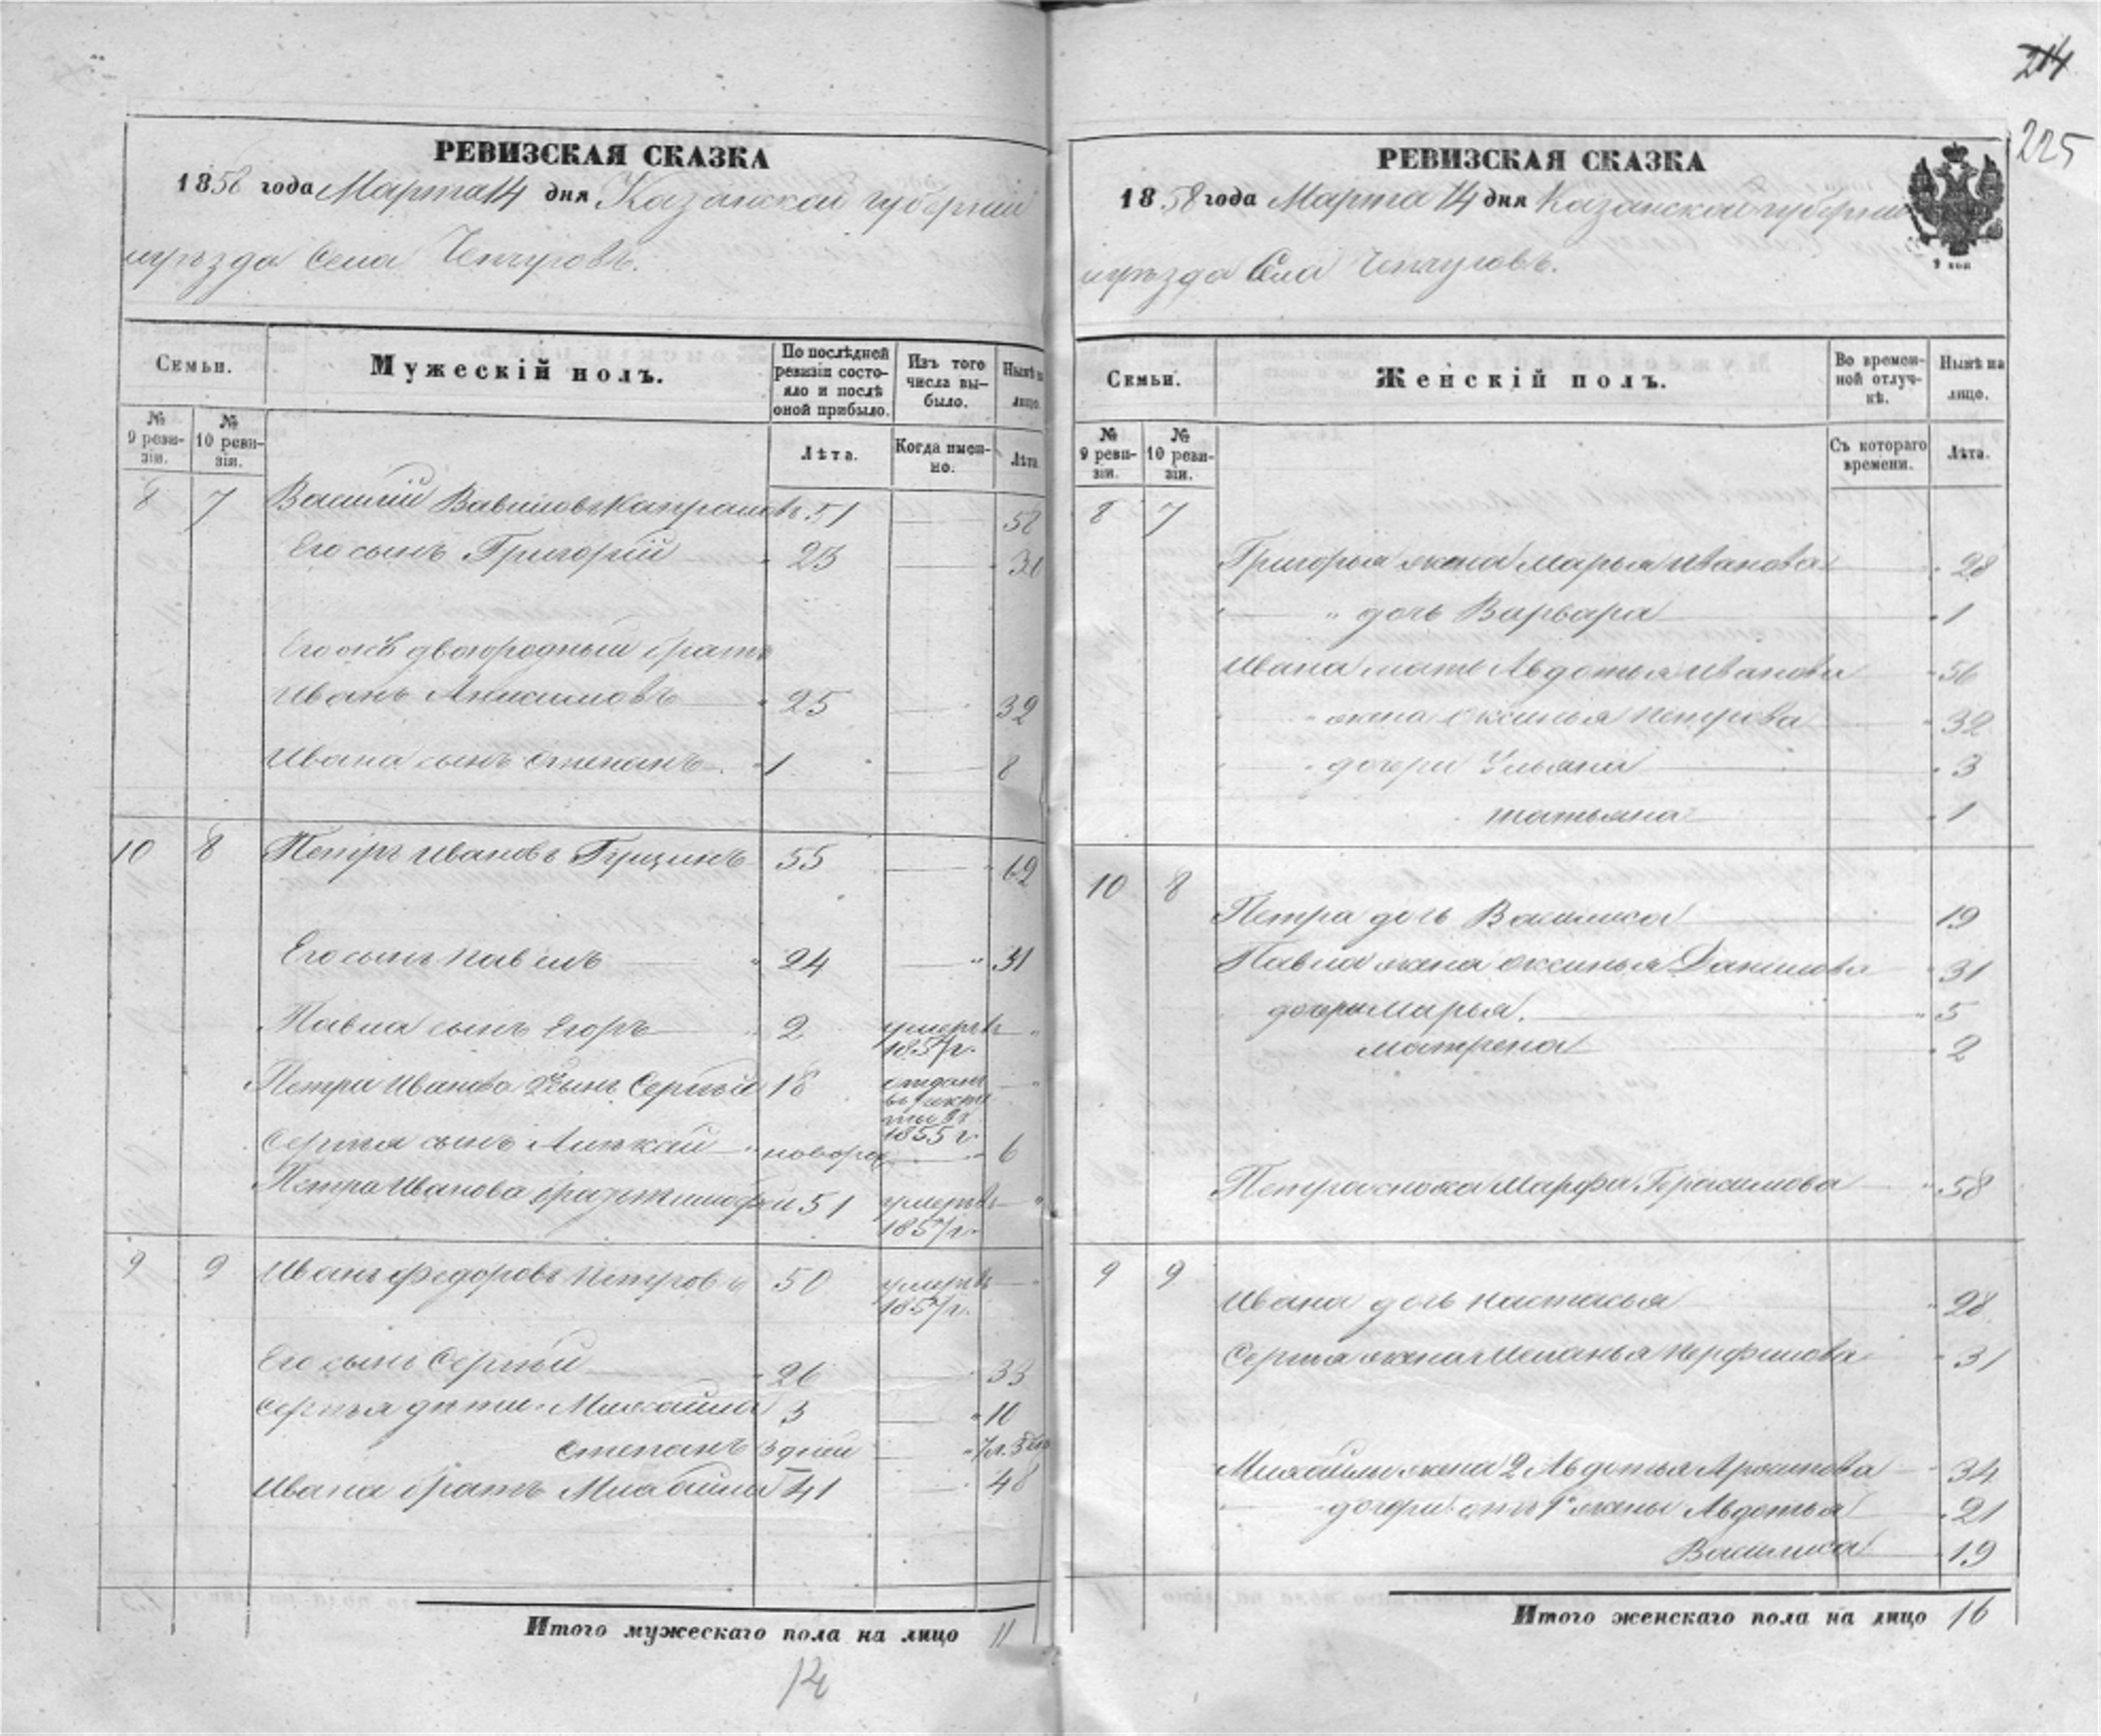 РЕВИЗСКАЯ СКАЗКА
1858 года Марта 14 дня Казанской губернии
уѣзда Села Чепчуговъ.
Семьи.
Мужескій полъ.
По послѣдней ревизіи состояло и послѣ оной прибыло.
Изъ того числа выбыло.
Нынѣ на лицо.
№ 9 ревизіи.
№ 10 ревизіи.
Лѣта.
Когда именно.
Лѣта
8 7 Василій Вавиловъ 51 58
Его сынъ Григорій 23 30
Его жъ двоюродный братъ
Иванъ Анисимовъ 25 32
Ивана сынъ Степанъ 1 8
10 8 Петръ Ивановъ Гущинъ 55 62
Его сынъ Павелъ 24 31
Павла сынъ Егоръ 2 умеръ въ 1857 г.
Петра Иванова 2 сынъ Сергѣй 18 отданъ въ рекруты въ 1855 г.
Сергѣя сынъ новорож 6
Петра Иванова братъ Тимофей 51 умеръ въ 1857 г.
9 9 Иванъ Федоровъ Петровъ 50 умеръ въ 1857 г.
Его сынъ Сергѣй 26 33
Сергѣя дѣти Михайла 3 10
Степанъ 3 дней 7 л. 3 дн
Ивана братъ Михайла 41 48
Итого мужескаго пола на лицо 11
12
214
225
РЕВИЗСКАЯ СКАЗКА
1858 года Марта 14 дня Казанской губерніи
уѣзда Села Чепчуговъ.
Семьи.
Женскій полъ.
Во временной отлучкѣ.
Нынѣ на лицо.
№ 9 ревизіи.
№ 10 ревизіи.
Съ котораго времени.
Лѣта.
8 7
Григорья жена Марья Иванова 28
" дочь Варвара 1
Ивана мать Авдотья Иванова 56
" жена Оксинья Петрова 32
" дочери Ульяна 3
Татьяна 1
10 8
Петра дочь Василиса 19
Павла жена Оксинья Данилова 31
дочери Марья. 5
Матрена 2
Петра сноха Марфа Герасимова 58
9 9
Ивана дочь Настасья 28
Сергѣя жена Меланья Перфилова 31
Михайлы жена 2 Авдотья 34
дочери отъ 1й жены Авдотья 21
Василиса 19
Итого женскаго пола на лицо 16